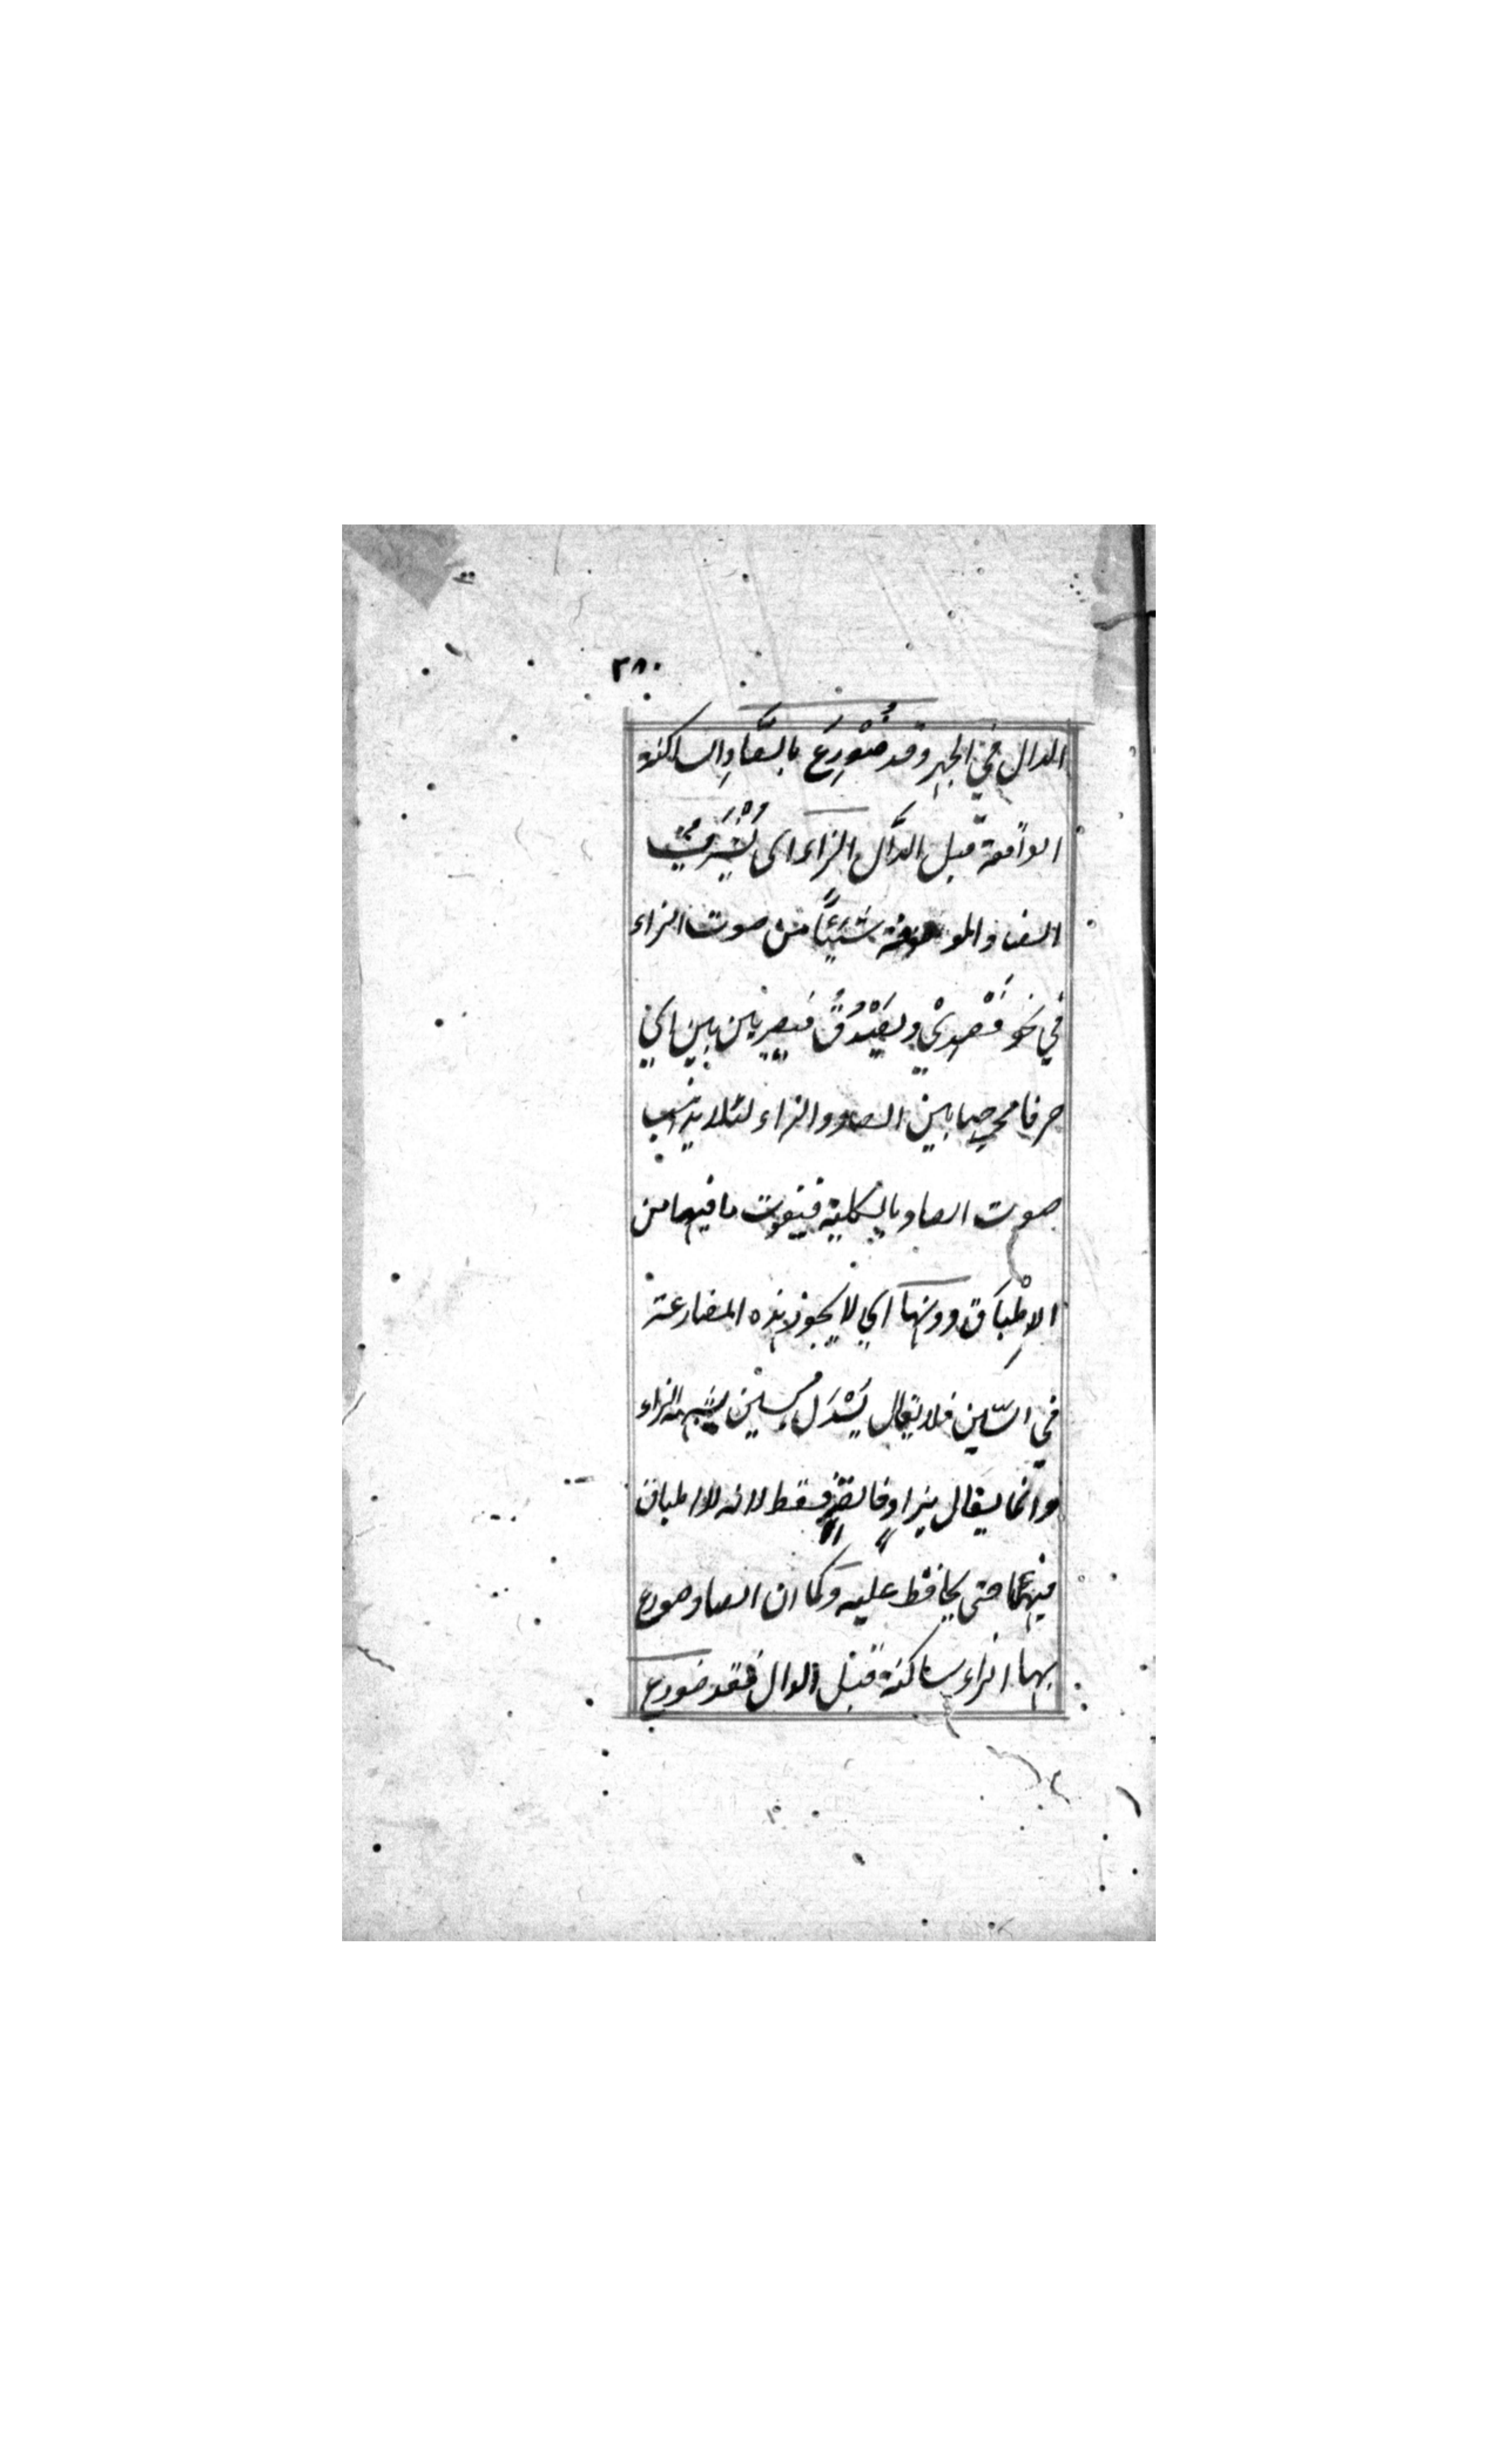 ٣٨٠
الدال في الجهر وقد ضُوْرِعَ بالصَّادِ الساكنة
الواقعة قبل الدَّال الزاءاى يُشْرَبُ
الصاد الموصوفة شَيْئًا من صوت الزاء
في نحو فَصْدِيْ ويَصْدُقُ فيصير بين بين اي
حرفا مخرجها بين الصاد والزاء لئلا يذهب
صوت الصاد بالكلية فيفوت ما فيها من
الاِطْبَاق دونها اي لا يجوز هذه المضارعة
في السّين فلا يقال يَسْدَل بسين يشبهه الزاء
وانما يقال بزاء فقط لانه لا اطباق
فيهما حتى يحافظ عليه وكما ان الصاد ضورع
بها الزاء ساكنة قبل الدال فقد ضورع